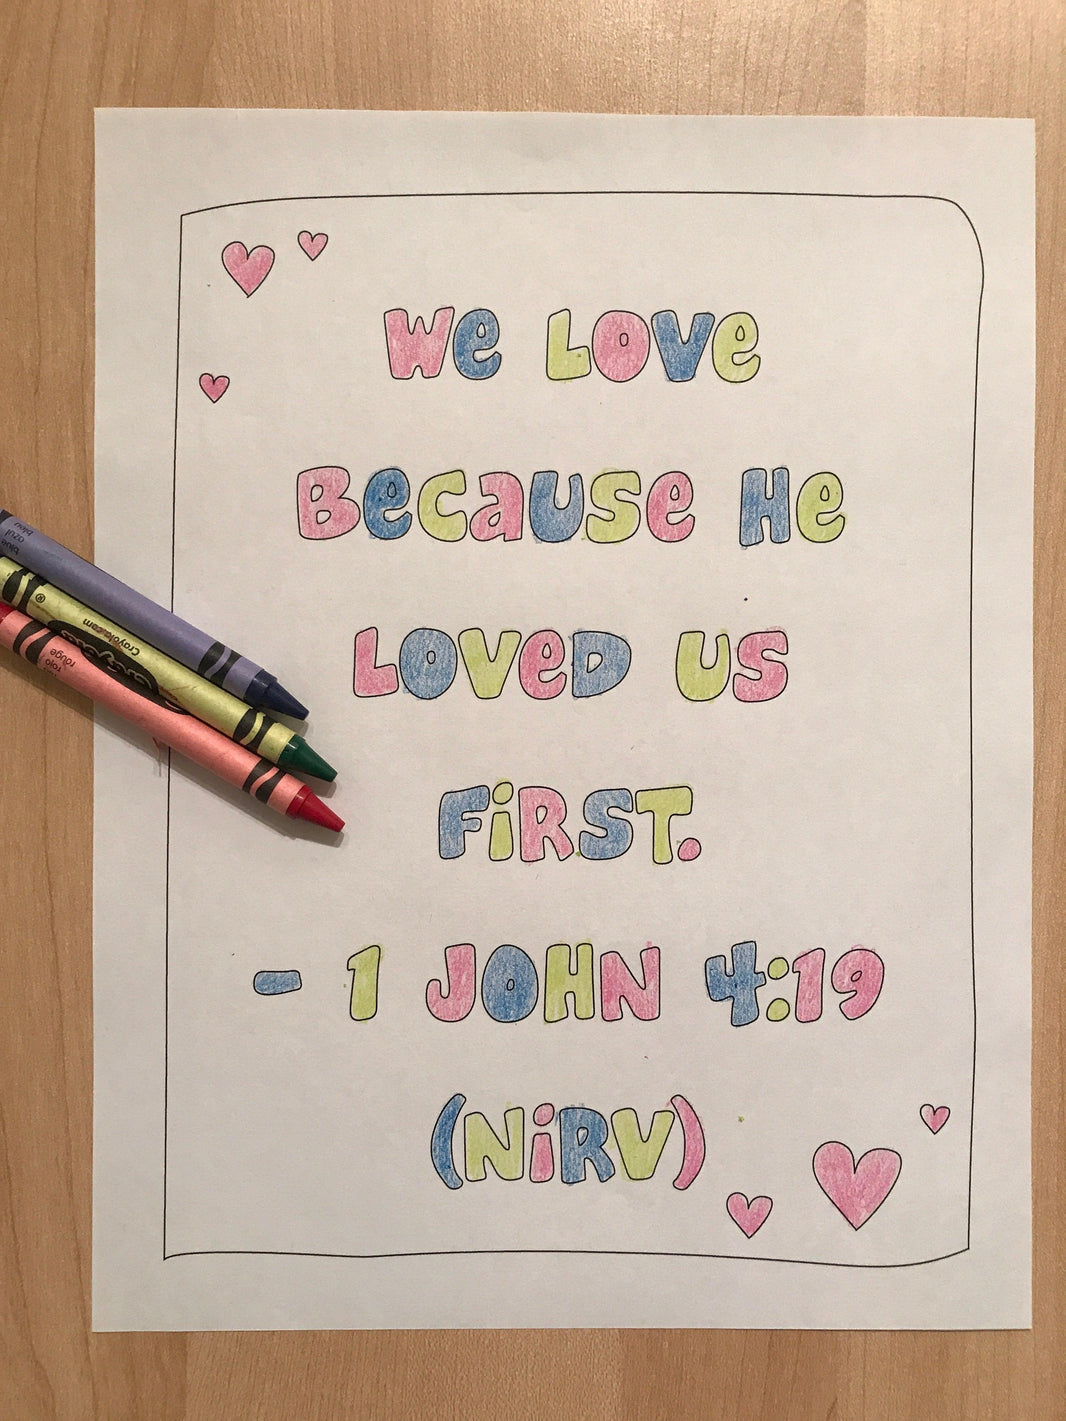 We Love
Because He
Loved us
First.
- 1 John 4:19
(NiRV)
blue
azul
bleu
Crayola.com
®
Crayola
rojo
rouge